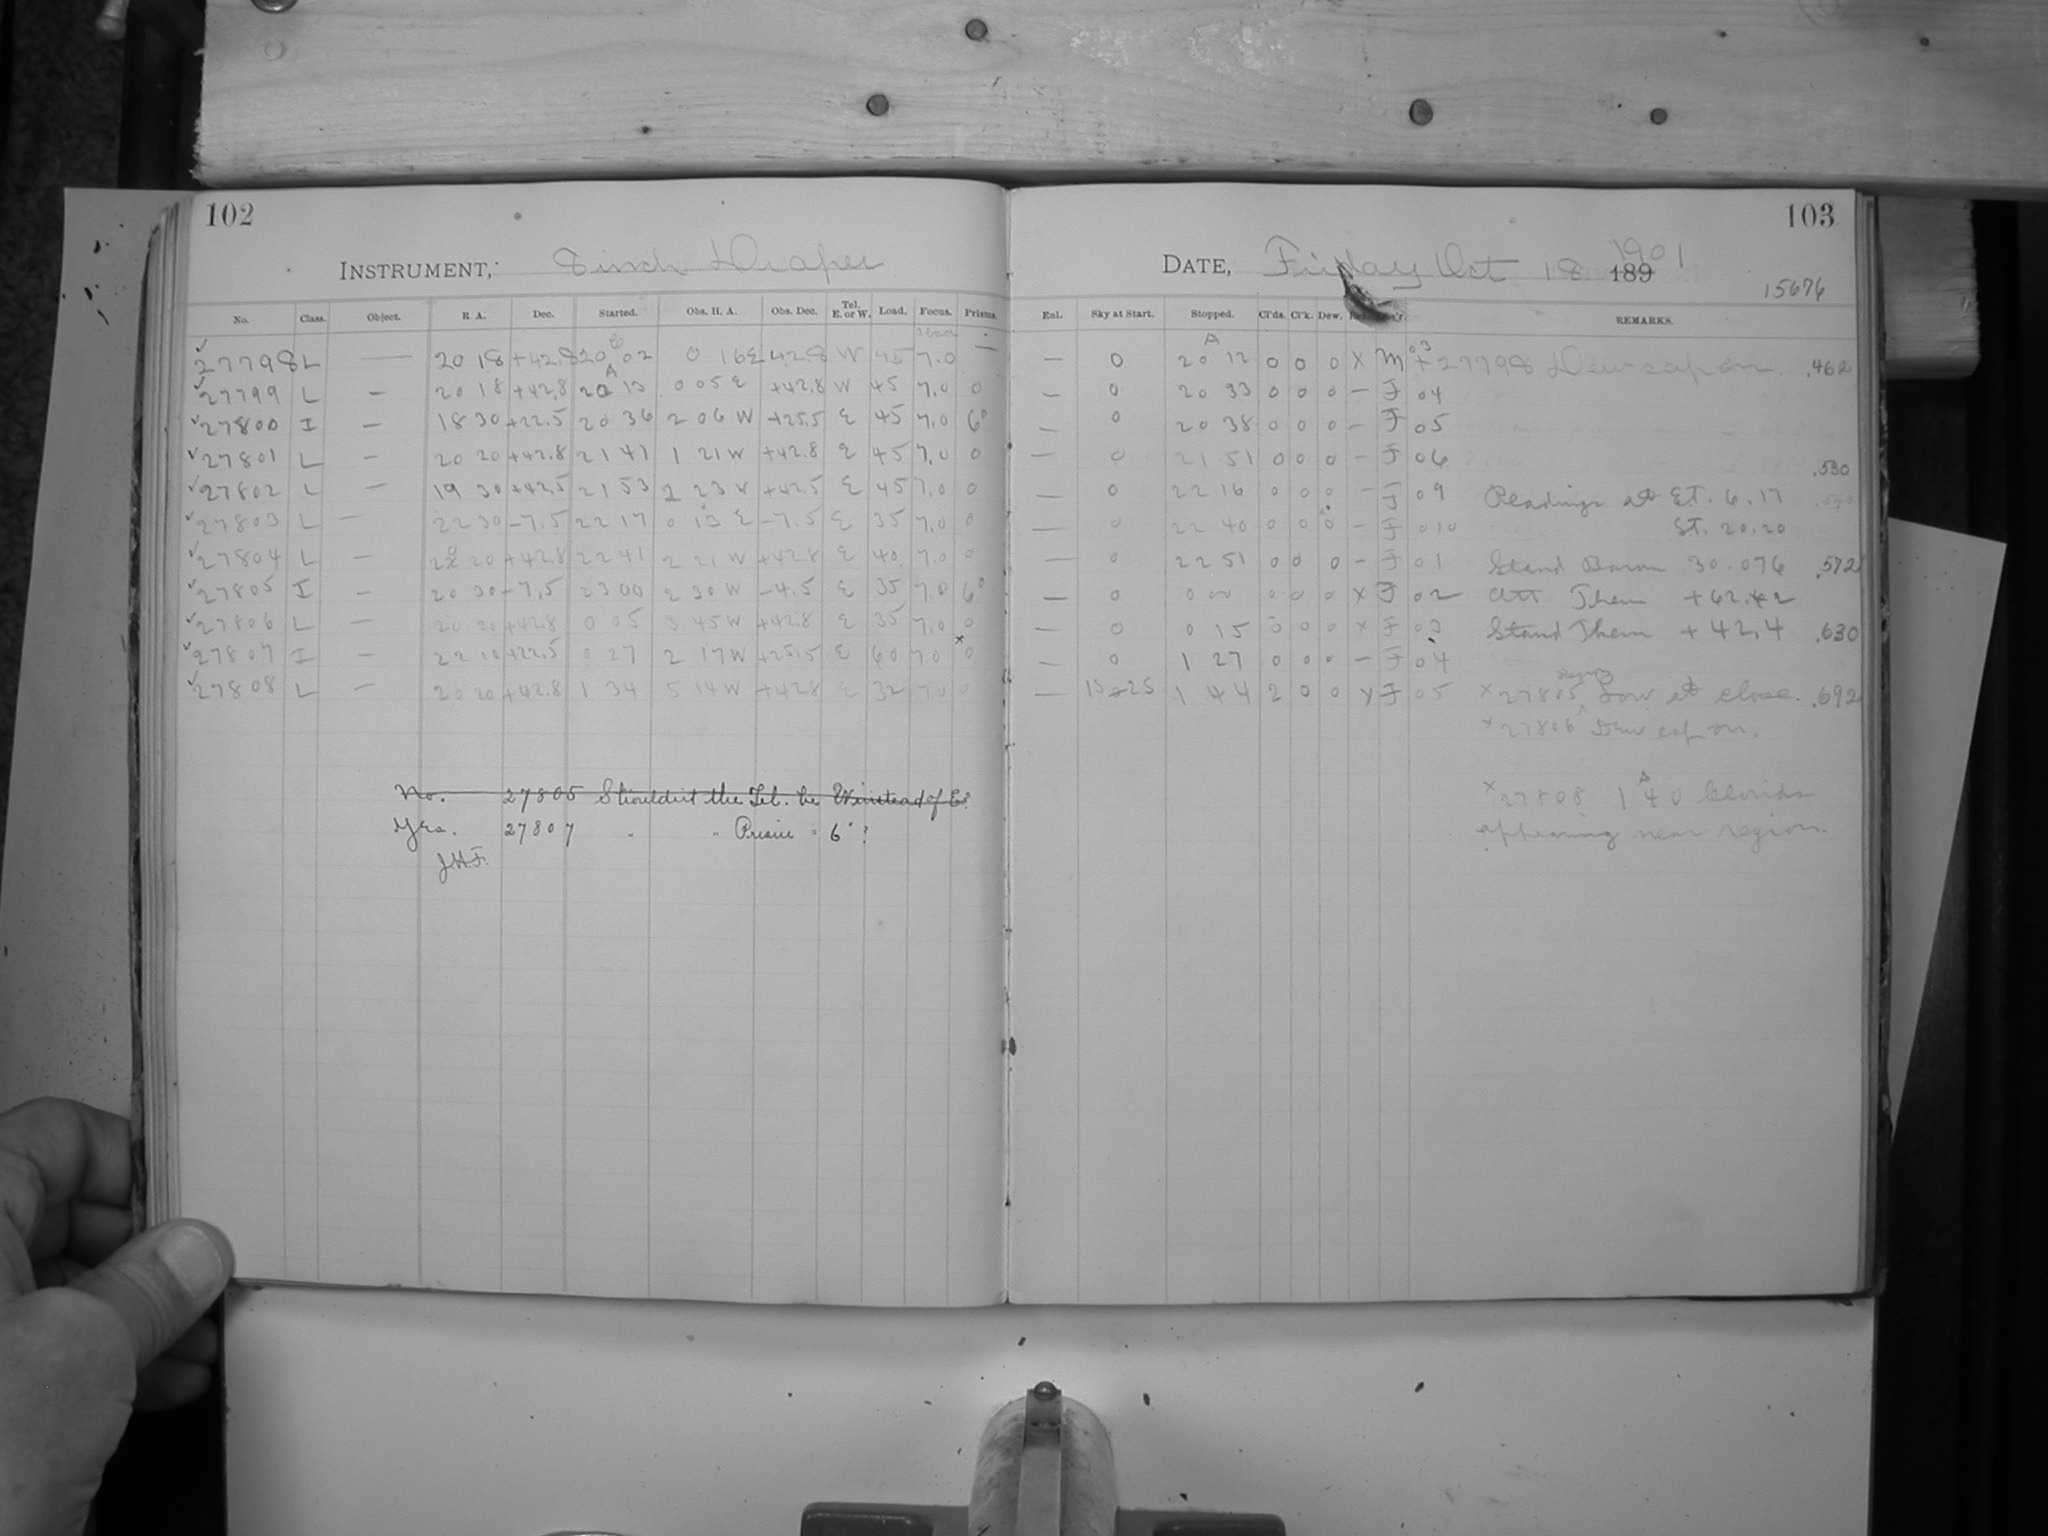 102
INSTRUMENT, 8 inch Draper
No. Class. Object. R. A. Dec. Started. Obs. H. A. Obs. Dec. Tel. E. or W. Load. Focus. Prisms.
27798 L — 20 18 +42.8 20 02 0 16 E 42.8 W 45 7.0 —
27799 L — 20 18 +42.8 20 13 0 05 E +42.8 W 45 7.0 0
27800 I — 18 30 +22.5 20 36 2 06 W +25.5 E 45 7.0 6°
27801 L — 20 20 +42.8 21 41 1 21 W +42.8 E 45 7.0 0
27802 L — 19 30 +42.5 21 53 2 23 W +42.5 E 45 7.0 0
27803 L — 22 30 -7.5 22 17 0 13 E -7.5 E 35 7.0 0
27804 L — 20 20 +42.8 22 41 2 21 W +42.8 E 40 7.0 0
27805 I — 20 30 -7.5 23 00 2 30 W -4.5 E 35 7.0 6°
27806 L — 20 20 +42.8 0 05 3 45 W +42.8 E 35 7.0 0
27807 I — 22 10 +22.5 0 27 2 17 W +25.5 E 60 7.0 × 0
27808 L — 20 20 +42.8 1 34 5 14 W +42.8 E 32 7.0 0
No. 27805 Shouldn't the Tel. be W instead of E?
Yes. 27807 " " Prism " 6° ?
J.H.F.
103
DATE, Friday Oct 18 1901 189
15676
Enl. Sky at Start. Stopped. Cl'ds. Cl'k. Dew. REMARKS.
— 0 20 12 0 0 0 × M 03 + 27798 Dewcap on. .462
— 0 20 33 0 0 0 — F 04
— 0 20 38 0 0 0 — F 05
— 0 21 51 0 0 0 — F 06 .530
— 0 22 16 0 0 0 — F 09 Readings at ET. 6.17
— 0 22 40 0 0 0 — F 010 ST. 20.20
— 0 22 51 0 0 0 — F 01 Stand Barom 30.076 .572
— 0 0 00 0 0 0 × F 02 Att Them +62.42
— 0 0 15 0 0 0 × F 03 Stand Them +42.4 .630
— 0 1 27 0 0 0 — F 04
— 1S-2S 1 44 2 0 0 × F 05 × 27805 region Low at close. .692
× 27806 Dew cap on.
× 27808 1 40 Clouds
appearing near region.